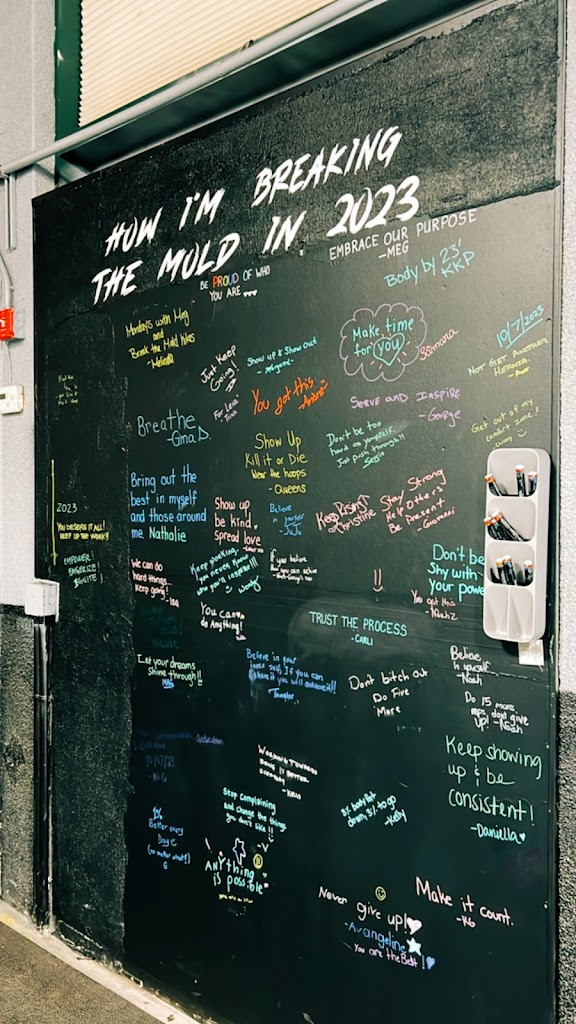 HOW I'M BREAKING
THE MOLD IN 2023
EMBRACE OUR PURPOSE
-MEG
BE PROUD OF WHO
YOU ARE
Body by 23'
KKP
Mondays with Meg
and
Break the Mold hikes
-Melinda
Just Keep
Going
Show up & Show out
Make time
for you
10/7/2023
NOT GET ANOTHER
HERNIA.
For Livia
You got this
SERVE AND INSPIRE
-George
Get out of my
comfort zone!
Breathe
-Gina D.
Show Up
Kill it or Die
Near the hoops
-Queens
Don't be too
hard on yourself.
Just push through!!
Sergio
Bring out the
best in myself
and those around
me Nathalie
Show up
be kind
spread love
Believe
in yourself
-JuJu
Keep Rising
Christine
Stay Strong
Help Others
Be Present
-Giovanni
2023
YOU DESERVE IT ALL!
KEEP UP THE WORK!!
EMPOWER
ENERGIZE
IGNITE
We can do
hard things.
Keep going!
-Isa
Keep pushing,
you never know
who you'll inspire!!!
-Wendy
if you believe
you can achieve
!!
Don't be
Shy with
your powe
You got this
-Noah2
You can
do Anything!
TRUST THE PROCESS
-CARLI
Let your dreams
shine through!!
MRS
Believe in your
inner self. If you can
believe it you will achieve it!!
Don't bitch out
Do Five
More
Believe
in yourself
-Noah
Do 15 more
reps don't give
up! -Noah
WORKING TOWARDS
BEING 1% BETTER
EVERYDAY
Keep showing
up & be
consistent!
-Daniella
Stop complaining
and change the things
you don't like!!
5% body fat
down, 5% to go
-Kelly
1%
Better every
Day
(no matter what!)
G
ANYthing
is possible
Never give up!
-Avangeline
You are the Best!
Make it count.
-KG